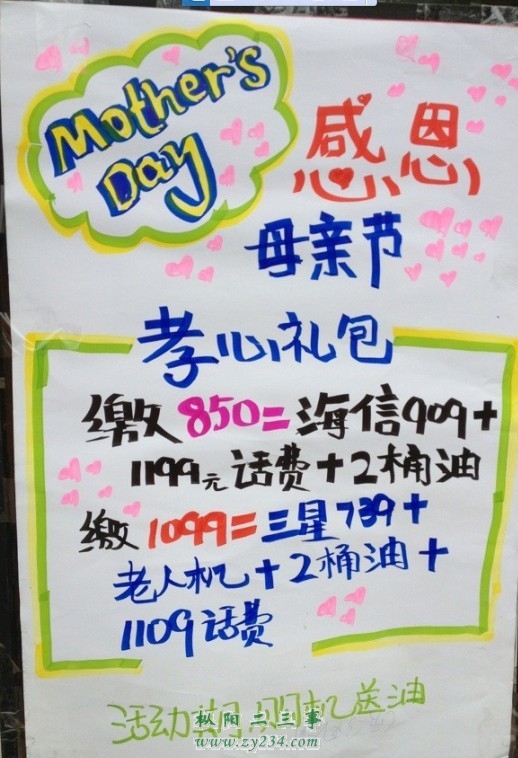 Mother's
Day
感恩
母亲节
孝心礼包
缴850=海信909+
1199元话费+2桶油
缴1099=三星739+
老人机+2桶油+
1109话费
活动期 购机送油
枞阳二三事
www.zy234.com